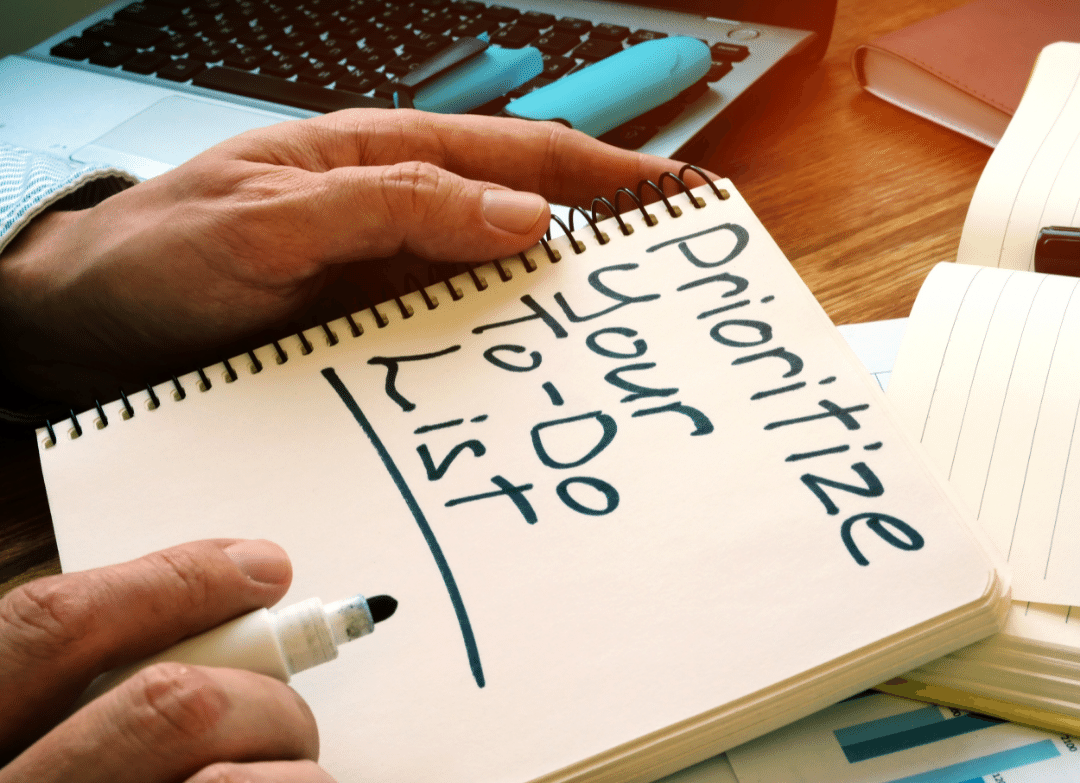 Prioritize
your
To-Do
List